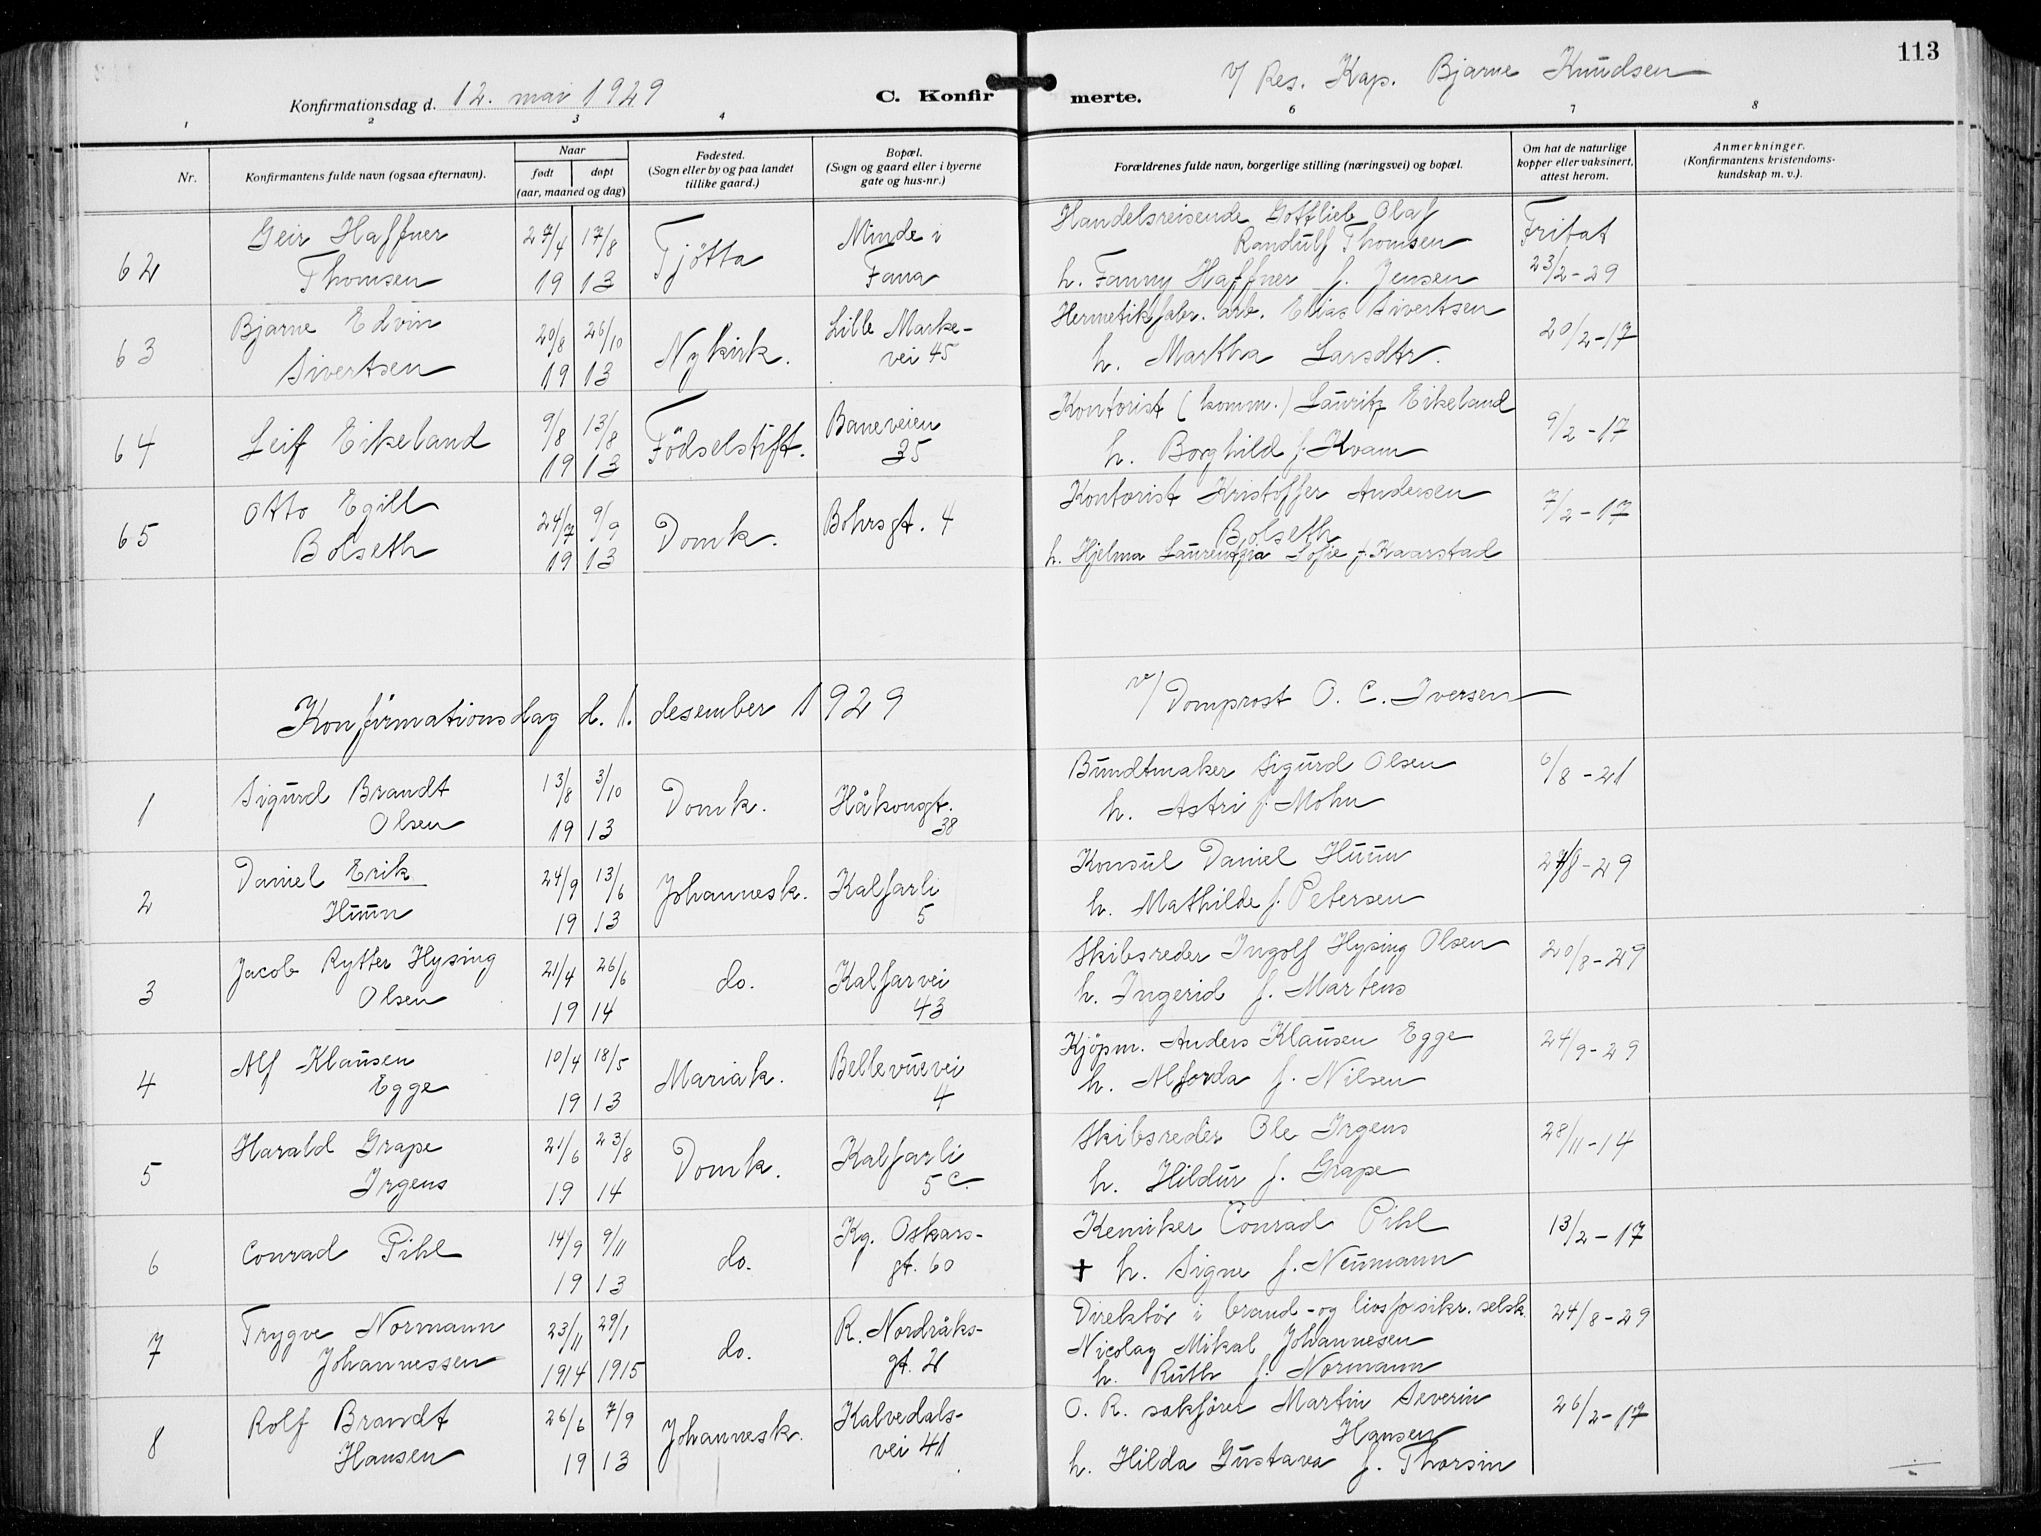 113
Konfirmationsdag d. 12. mai 1929
C. Konfirmerte.
v/ Res. Kap. Bjarne Knudsen
1 2 3 4 6 7 8
Nr.
Konfirmantens fulde navn (ogsaa efternavn).
Naar
født døpt
(aar, maaned og dag)
Fødested.
(Sogn eller by og paa landet
tillike gaard.)
Bopæl.
(Sogn og gaard eller i byerne
gate og hus-nr.)
Forældrenes fulde navn, borgerlige stilling (næringsvei) og bopæl.
Om hat de naturlige
kopper eller vaksinert,
attest herom.
Anmerkninger.
(Konfirmantens kristendoms-
kundskap m. v.).
Geir Haffner 27/4 17/8 Minde i Handelsreisende Gottlieb Olaf Fritat
62 Thomsen 19 13 Tjötta Fana Randulf Thomsen 23/2-29
h. Fanny Haffner f. Jensen
Bjarne Edvin 20/8 26/10 Lille Marke- Hermetikfabr. arb. Elias Sivertsen 20/2-17
63 Sivertsen 19 13 Nykirk. vei 45 h. Martha Larsdtr.
64 Leif Eikeland 9/8 13/8 Födselstift. Baneveien Kontorist (komm.) Lauritz Eikeland 9/2-17
19 13 35 h. Borghild f. Kvam
Otto Egill 24/7 9/9 Bohrsgt. 4 Kontorist Kristoffer Andersen 7/2-17
65 Bolseth 19 13 Domk. Bolseth
h. Hjelma Laurentzia Sofie f. Kaarstad
Konfirmationsdag d. 1. desember 1929
v/ Domprost O. C. Iversen
1 Sigurd Brandt 13/8 3/10 Domk. Håkonsgt. Bundtmaker Sigurd Olsen 6/8-21
Olsen 19 13 38 h. Astri f. Mohn
2 Daniel Erik 24/9 13/6 Johannesk. Kalfarli Konsul Daniel Huun 27/8-29
Huun 19 13 5 h. Mathilde f. Petersen
3 Jacob Rytter Hysing 21/4 26/6 do. Kalfarvei Skibsreder Ingolf Hysing Olsen 20/8-29
Olsen 19 14 43 h. Ingerid f. Martens
4 Alf Klausen 10/4 18/5 Mariak. Bellevuevei Kjöpm. Anders Klausen Egge 24/9-29
Egge 19 13 4 h. Alforda f. Nilsen
5 Harald Grape 21/6 23/8 Domk. Kalfarli Skibsreder Ole Irgens 28/11-14
Irgens 19 14 5 C. h. Hildur f. Grape
6 Conrad Pihl 14/9 9/11 do. Kg. Oskars- Kemiker Conrad Pihl 13/2-17
19 13 gt. 60 + h. Signe f. Neumann
7 Trygve Normann 23/11 29/1 do. R. Nordråks- Direktör i brand-og livsforsikr. selsk. 24/8-29
Johannessen 1914 1915 gt. 21 Nicolay Mikal Johannesen
h. Ruth f. Normann
8 Rolf Brandt 26/6 7/9 Johannesk. Kalvedals- O. R. sakförer Martin Severin 26/2-17
Hansen 19 13 vei 41 Hansen
h. Hilda Gustava f. Thorsin